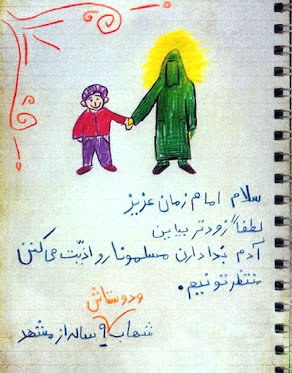 سلام امام زمان عزیز
لطفاً زودتر بیاین
آدم بَدا دارن مسلمونا رو اذیّت می‌کنن
منتظرتونیم.
و دوستاش
شهاب ۹ ساله از مشهد